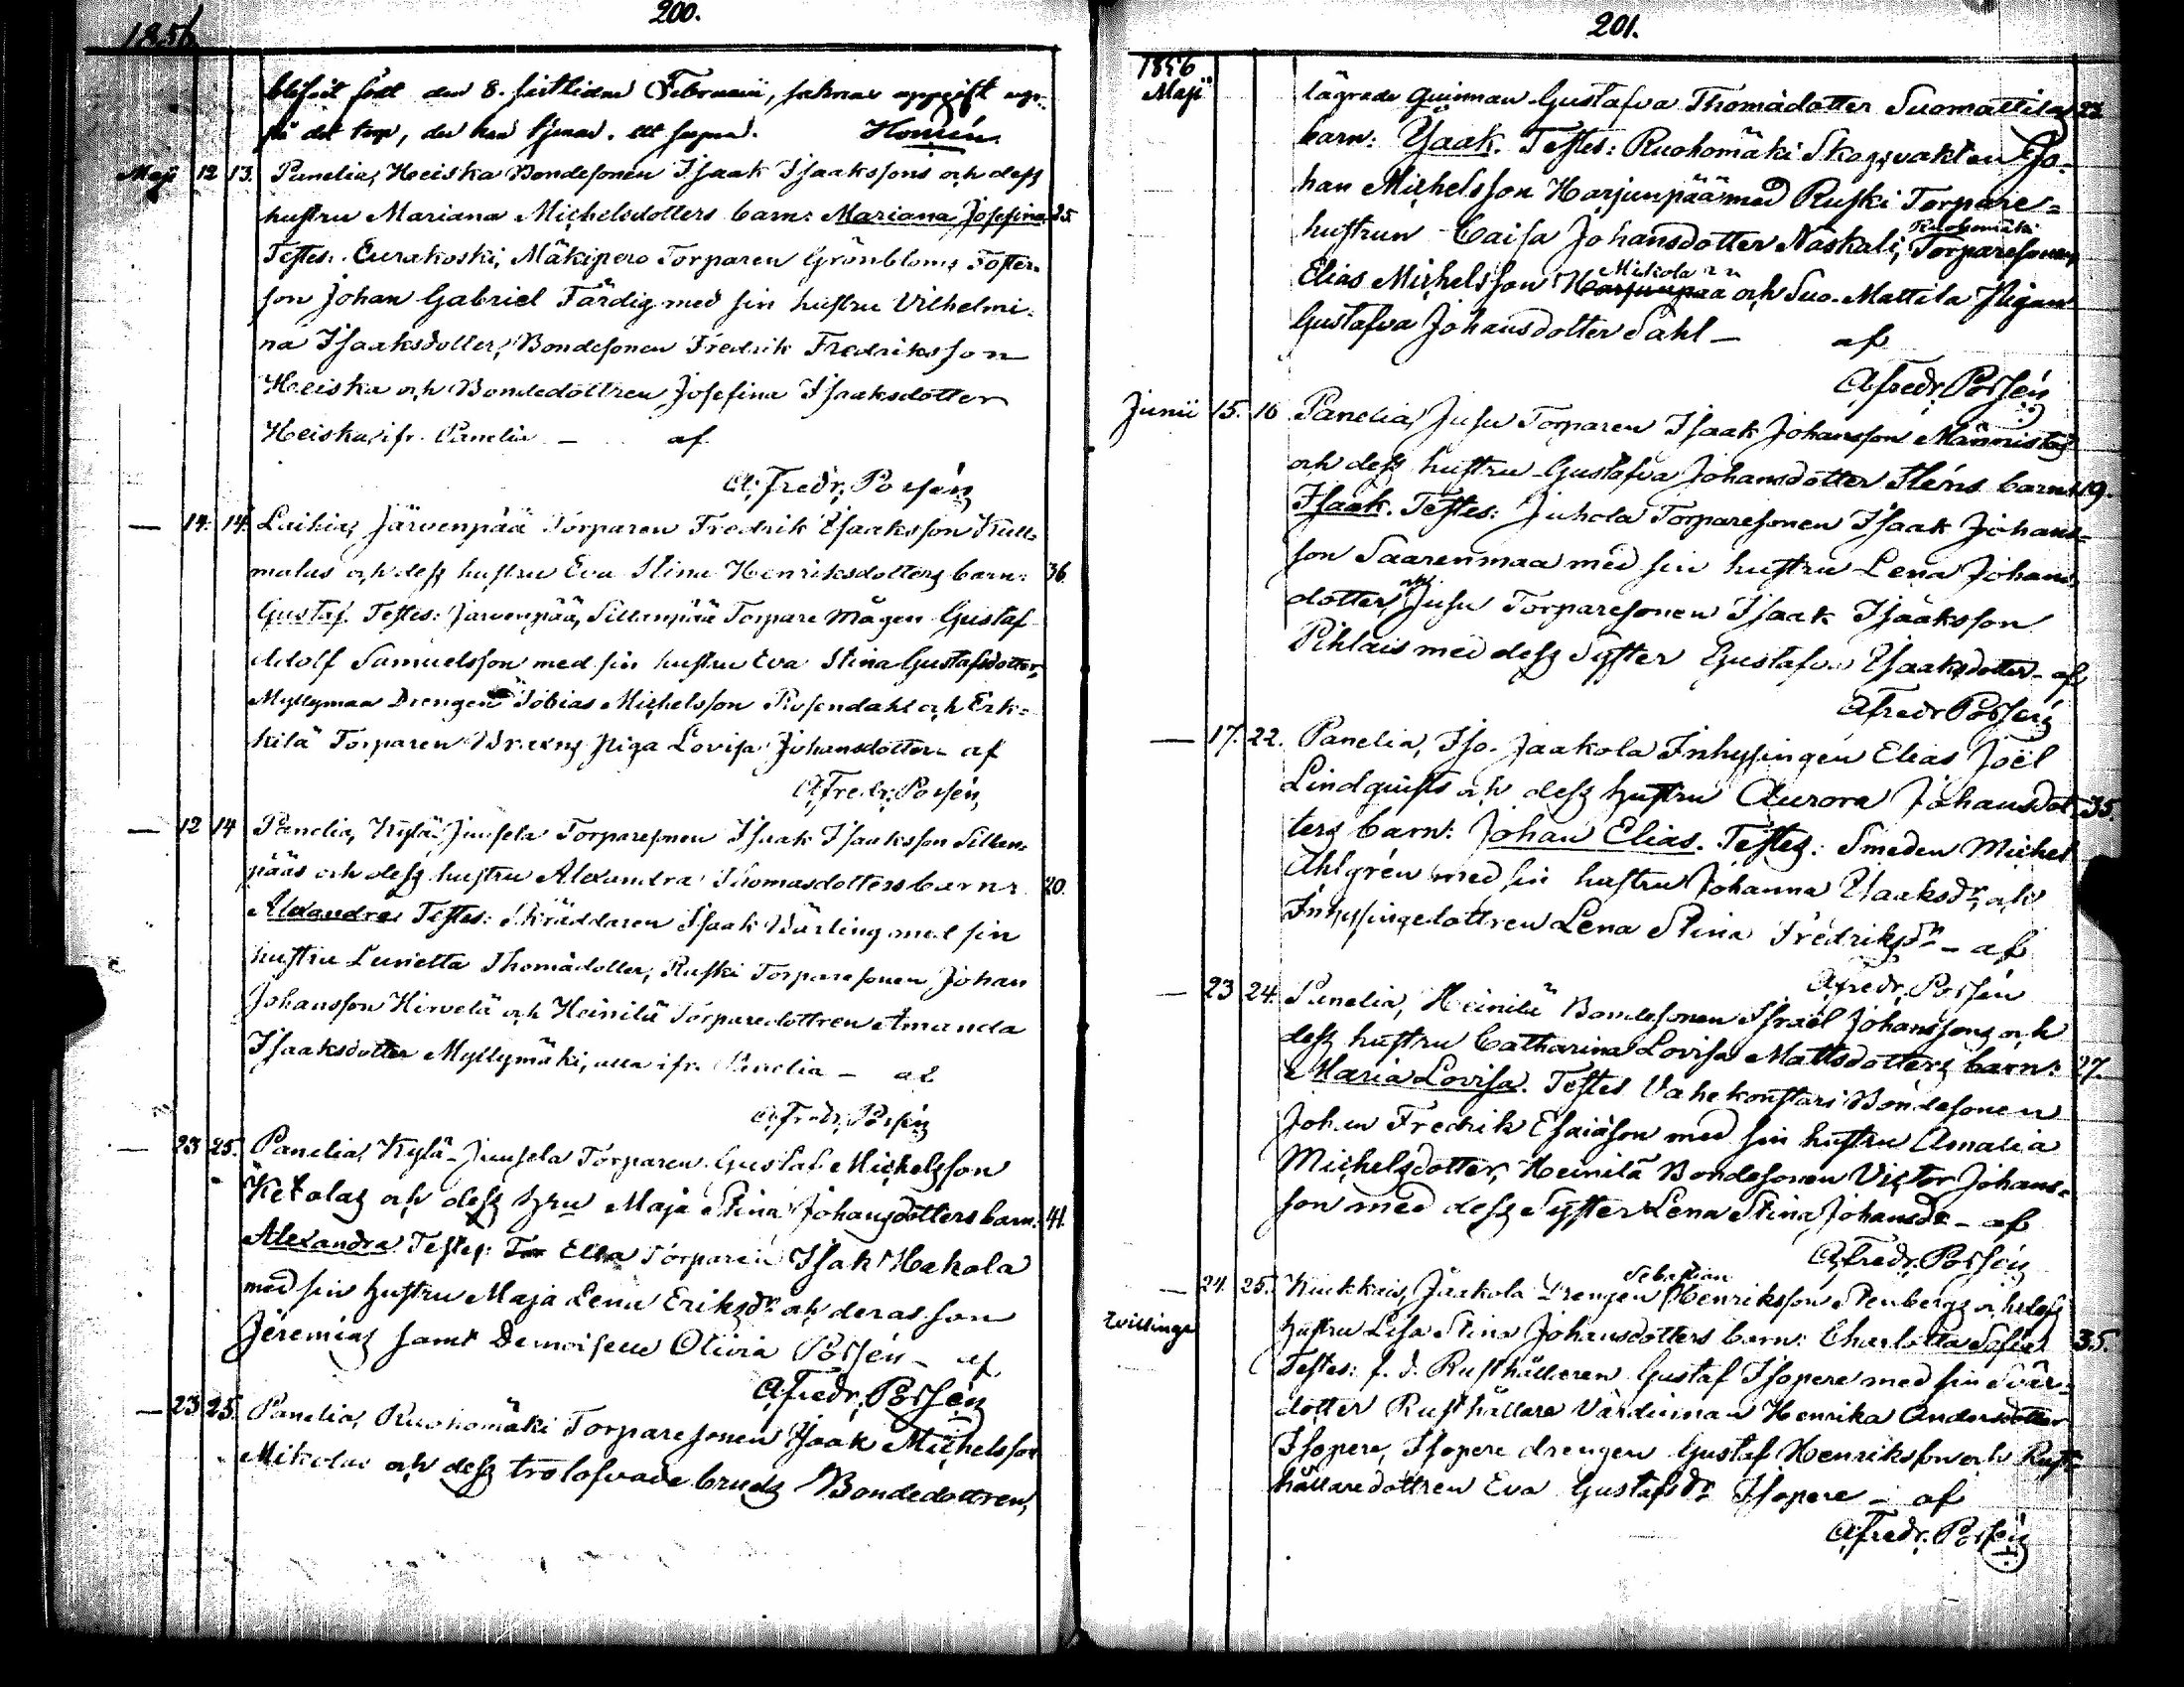 200.
1856
blifvit född den 8. sistlidne Februarii, saknar uppgift
på det torp, der han tjenar. Homén
Maji 12 13. Panelia, Heiska Bondesonen Isaak Isaakssons och dess
hustru Mariana Michelsdotters barn: Mariana Josefina. 25
Testes: Eurakoski, Mäkipero Torparen Grönbloms Foster-
son Johan Gabriel Färdig med sin hustru Vilhelmi-
na Isaaksdotter, Bondesonen Fredrik Fredriksson
Heiska och Bondedottren Josefina Isaaksdotter
Heiska, ifr. Panelia — af
A. Fredr. Porsén
— 14. 14. Laihia, Järvenpää Torparen Fredrik Isaaksson Kull-
malas och dess hustru Eva Stina Henriksdotters barn: 36
Gustaf. Testes: Järvenpää, Sillanpää Torpare Mågen Gustaf
Adolf Samuelsson med sin hustru Eva Stina Gustafsdotter,
Myllymaa Drengen Tobias Michelsson Rosendahl och Erk-
kilä Torparen Piga Lovisa Johansdotter — af
A. Fredr. Porsén
— 12 14 Panelia, Kylä-Juusela Torparesonen Isaak Isaaksson Sillan-
pääs och dess hustru Alexandra Thomasdotters barn: 20.
Alexandra. Testes: Skräddaren Isaak Wärling med sin
hustru Lunetta Thomadotter, Ruski Torparesonen Johan
Johansson Hirvelä och Heinilä Torparedottren Amanda
Isaaksdotter Myllymäki, alla ifr. Panelia — af
A. Fredr. Porsén
— 23 25. Panelia, Kylä-Juusela Torparen Gustaf Michelsson
Ketolas och dess hru Maja Stina Johansdotters barn: 41.
Alexandra. Testes: Torparen Isak Hakola
med sin hustru Maja Lena Eriksdr och deras son
Jeremias samt Demoiselle Olivia Porsén — af
A. Fredr. Porsén
— 23 25 Panelia, Ruohomäki Torparesonen Isaak Michelsson
Mikolas och dess trolofvade bruds Bondedottren,
201.
1856
Maji lägrade quinnan Gustafva Thomadotter Suomattilas 22
barn: Isaak. Testes: Ruohomäki Skogsvakten Jo-
han Michelsson Harjunpää med Ruski Torpare-
hustrun Caisa Johansdotter Naskali, Ruohomäki Torparesonen
Elias Michelsson Mickola och Suo-Mattila Pigan
Gustafva Johansdotter Dahl — af
A. Fredr. Porsén
Junii 15. 16 Panelia, Jusu Torparen Isaak Johansson Männistös
och dess hustru Gustafva Johansdotter Sténs barn: 19.
Isaak. Testes: Juhola Torparesonen Isaak Johans-
son Saarenmaa med sin hustru Lena Johans-
dotter, och Jusu Torparesonen Isaak Isaaksson
Pihlais med dess syster Gustafva Isaaksdotter — af
A. Fredr. Porsén
— 17. 22. Panelia, Iso-Jaakola Inhysingen Elias Joël
Lindquists och dess hustru Aurora Johansdot- 35.
ters barn: Johan Elias. Testes: Smeden Michel
Ahlgrén med sin hustru Johanna Isaaksdr, och
Inhysingedottren Lena Stina Fredriksdr — af
A. Fredr. Porsén
— 23 24. Panelia, Heinilä Bondesonen Israel Johanssons och
dess hustru Catharina Lovisa Mattsdotters barn: 27.
Maria Lovisa. Testes Vahekonstari Bondesonen
Johan Fredrik Esaiasson med sin hustru Amalia
Michelsdotter, Heinilä Bondesonen Victor Johans-
son med dess Syster Lena Stina Johansdr — af
A. Fredr. Porsén
— 24 25. Kiukkais, Jaakola Drengen Sebastian Henriksson Stenbergs och dess
tvillingar hustru Lisa Stina Johansdotters barn: Charlotta Sofia 35.
Testes: f. d. Rusthållaren Gustaf Isopere med sin Svär-
dotter Rusthållare Värdinnan Henrika Andersdotter
Isopere, Isopere drengen Gustaf Henriksson och Rust-
hållaredottren Eva Gustafsdr Isopere — af
A. Fredr. Porsén